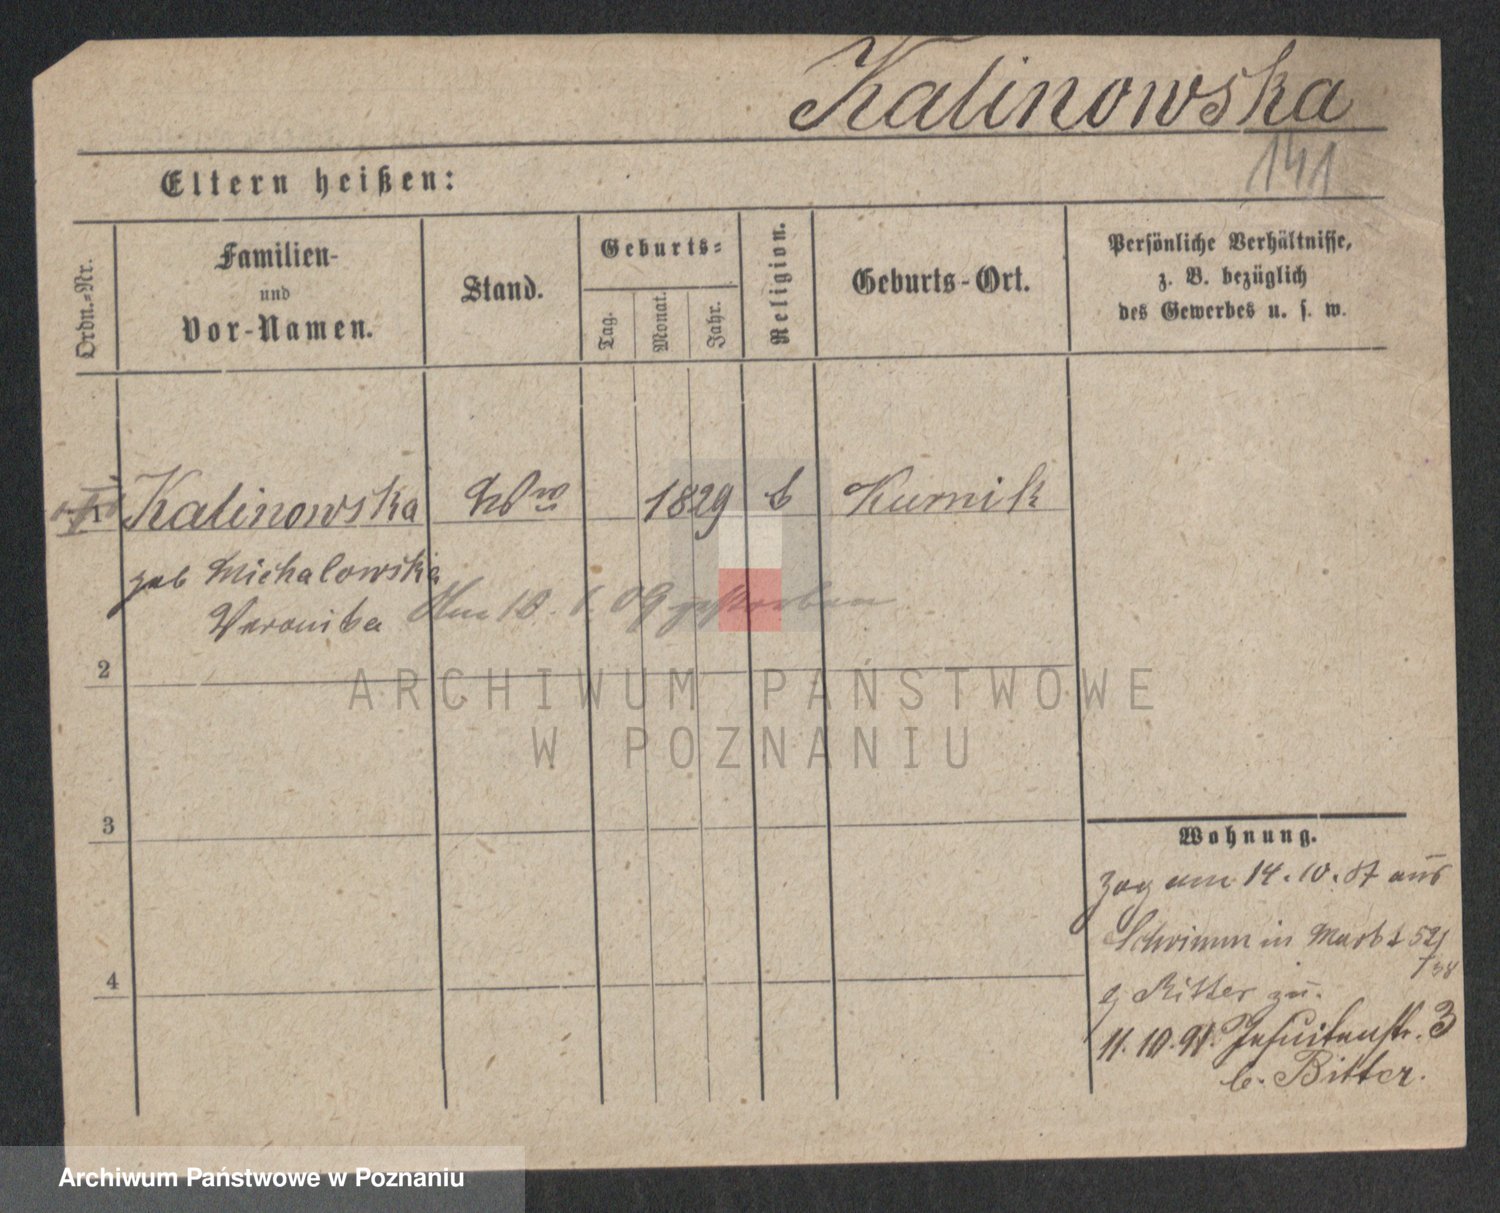 Kalinowska
141
Eltern heißen:
Ordn.-Nr.
Familien-
und
Vor-Namen.
Stand.
Geburts-
Tag.
Monat.
Jahr.
Religion.
Geburts-Ort.
Persönliche Verhältnisse,
z. B. bezüglich
des Gewerbes u. s. w.
1 Kalinowska Ww 1829 k Kurnik
geb Michalowska
Veronika
Am 18. 1. 09 gestorben
2
3
4
Wohnung.
Zog am 14.10.87 aus
Schrimm in Markt 52/
b Ritter zu.
11.10.91. Jesuitenstr. 3
b. Ritter.
ARCHIWUM PAŃSTWOWE
W POZNANIU
Archiwum Państwowe w Poznaniu